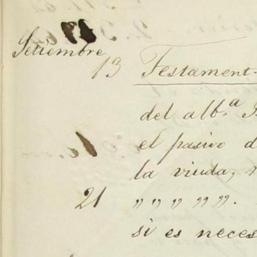 Setiembre
13 Testament-
del alb.ª
el pasivo d
la viuda,
21 " " " " ".
si es neces